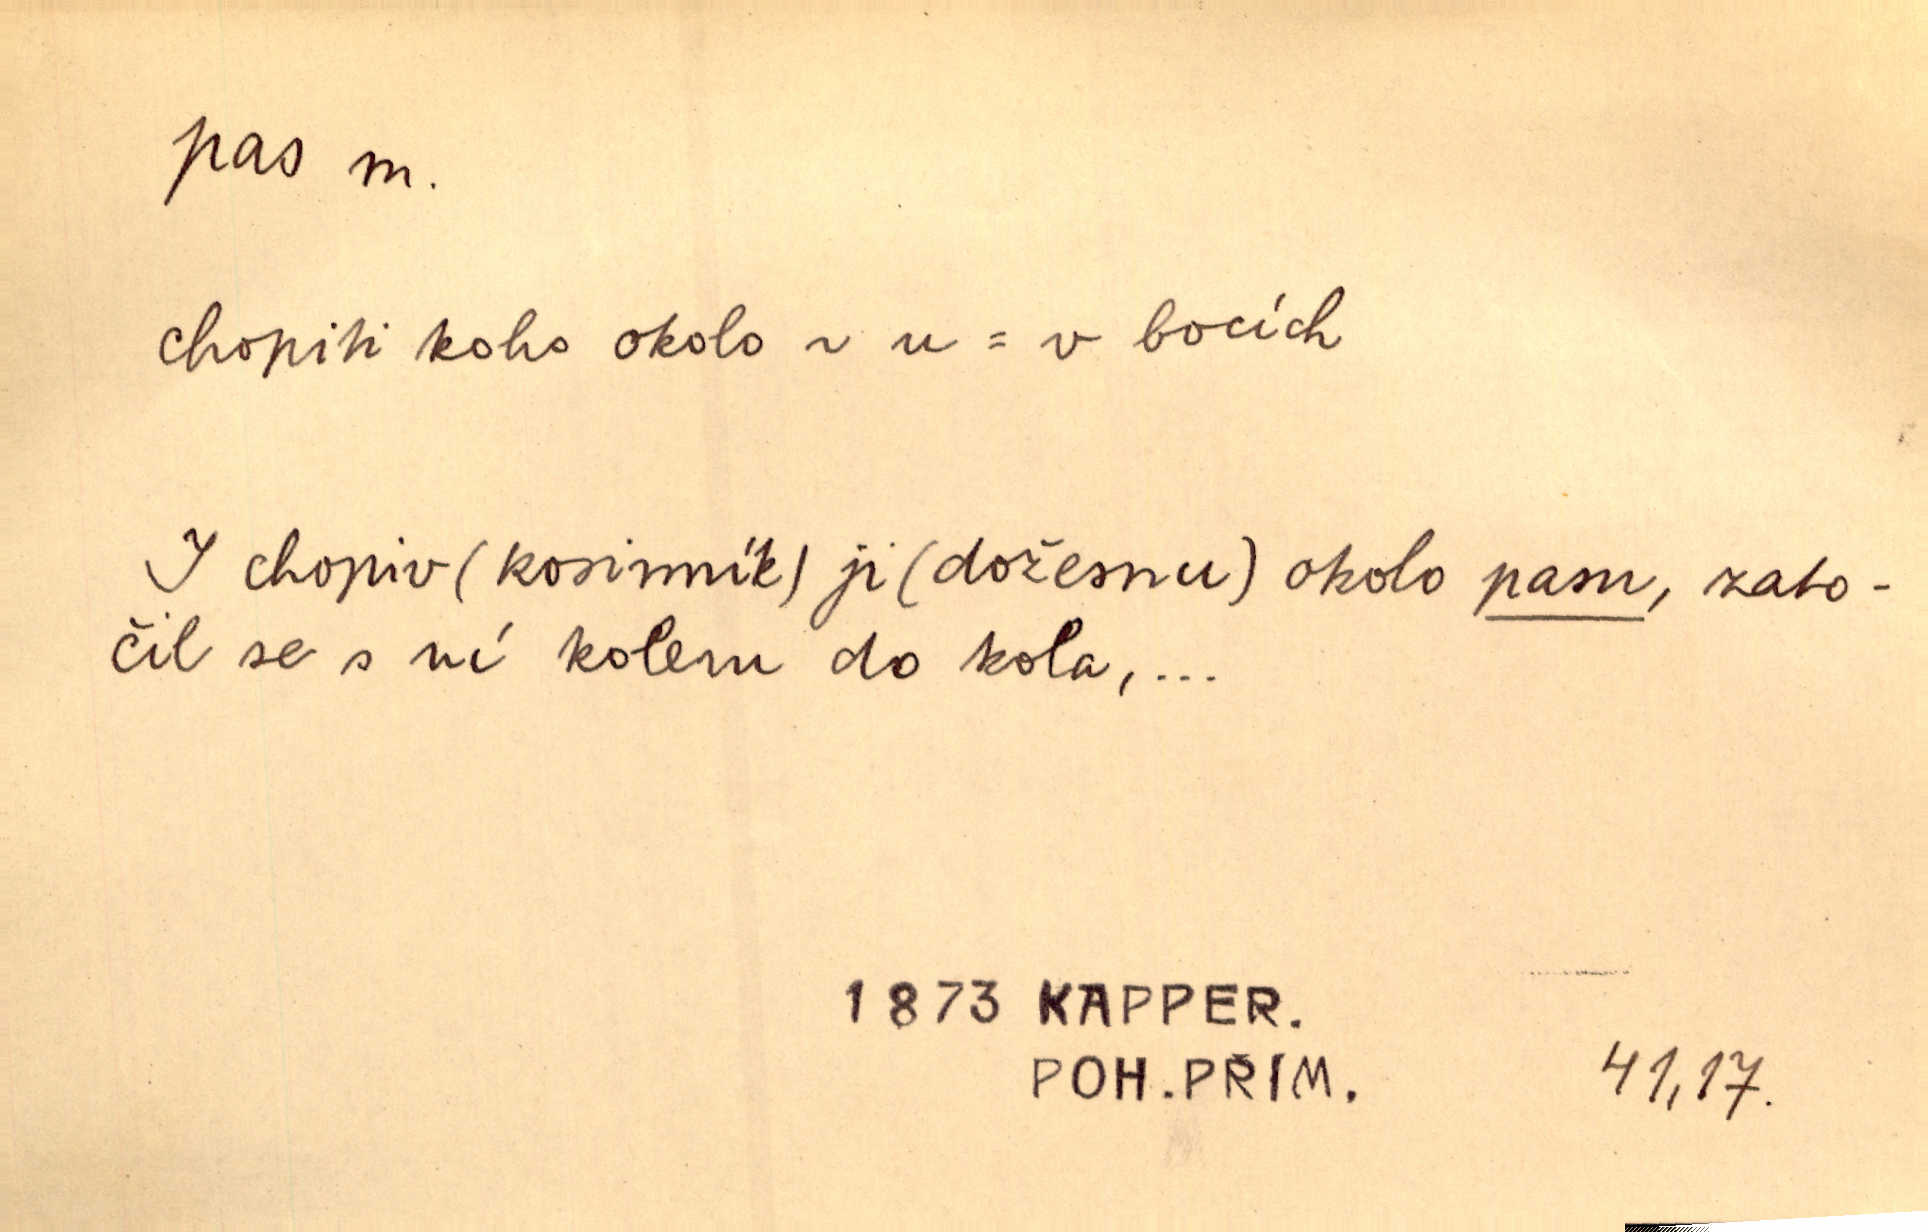 pas m.
chopiti koho okolo ~ u = v bocích
I chopiv (kosinník) ji (dožesnu) okolo pasu, zato-
čil se s ní kolem do kola, ...
1873 KAPPER.
POH. PŘÍM.
41,17.